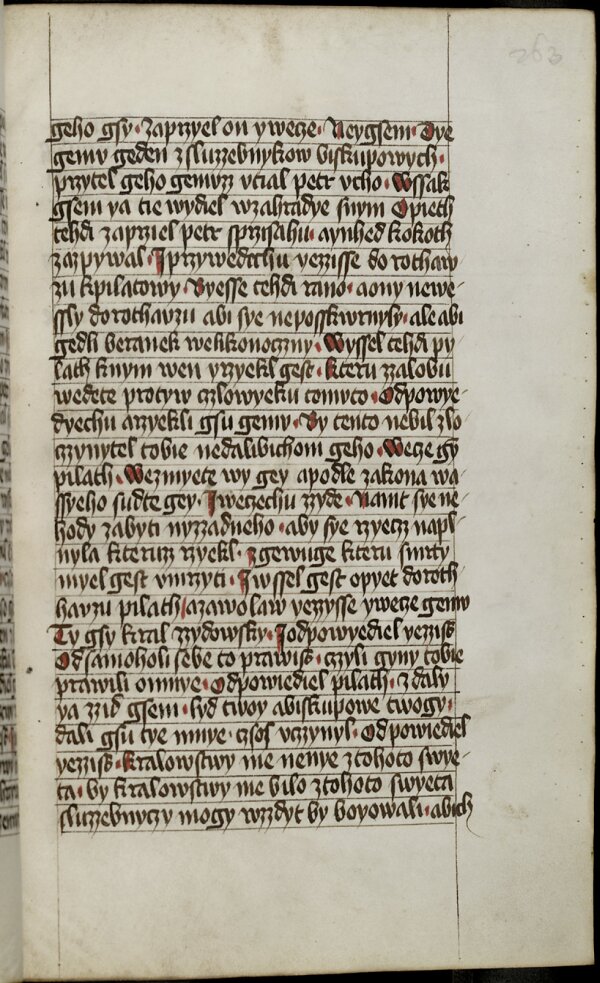 263
geho gsy · zaprzyel on y wecze · Neygsem · Dye
gemu geden z sluzzebnykow biskupowych ·
przytel geho gemuzz utial petr ucho · Wssak
gsem ya tie wydiel w zahradye s nym Opieth
tehdi zaprziel petr s przisahu · a ynhed kokoth
zazpywal · I przywedechu yezzisse do rothaw
zu k pilatowy · Byesse tehdi rano · a ony newe
ssly do rothauzu abi sye neposskwrnyly · ale abi
gedli beranek welikonoczny · Wyssel tehdi py
lath k nym wen y rzyekl gest · Kteru zzalobu
wedete protyw czlowyeku tomuto · Odpowye
dyechu a rzyekli gsu gemu · By tento nebil zlo
czynytel tobie nedalibichom geho · Wecze gy
pilath · Wezmyete wy gey a podle zakona wa
ssyeho sudte gey · I weczechu zzyde · Namt sye ne
hody zabyti nyzzadneho · aby sye rzyecz napl
nyla kteruz rzyekl · zgewuge kteru smrty
myel gest umrzyti · I wssel gest opyet do roth
hauzu pilath a zawolaw yezzysse y wecze gemu
Ty gsy kral zzydowsky · I odpowyediel yezzis
Od samoholi sebe to prawis · czyli gyny tobie
prawili o mnye · Odpowiediel pilath · zdaly
ya zzid gsem · lyd twoy a biskupowe twogy ·
dali gsu tye mnye · czsos uczynyl · Odpowiediel
yezzis · Kralowstwy me nenye z tohoto swye
ta · by kralowstwy me bilo z tohoto swyeta
sluzzebnyczy mogy wzzdyt by boyowali · abich